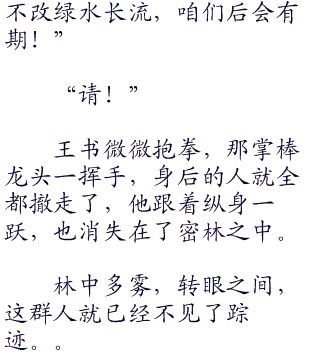 不改绿水长流，咱们后会有
期！”
“请！”
王书微微抱拳，那掌棒
龙头一挥手，身后的人就全
都撤走了，他跟着纵身一
跃，也消失在了密林之中。
林中多雾，转眼之间，
这群人就已经不见了踪
迹。。